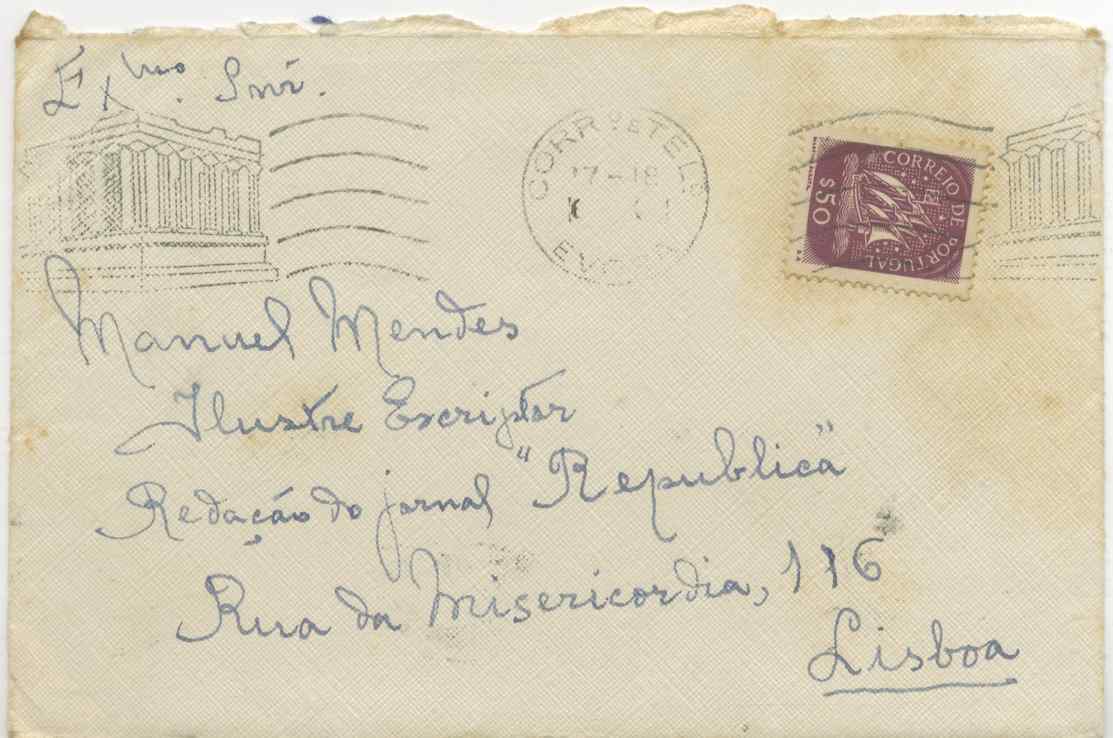 Exmo. Snr.
CORR os E TEL
17-18
CORREIO DE PORTUGAL
$50
Manuel Mendes
Ilustre Escriptor
Redação do jornal "Republica"
Rua da Misericordia, 116
Lisboa